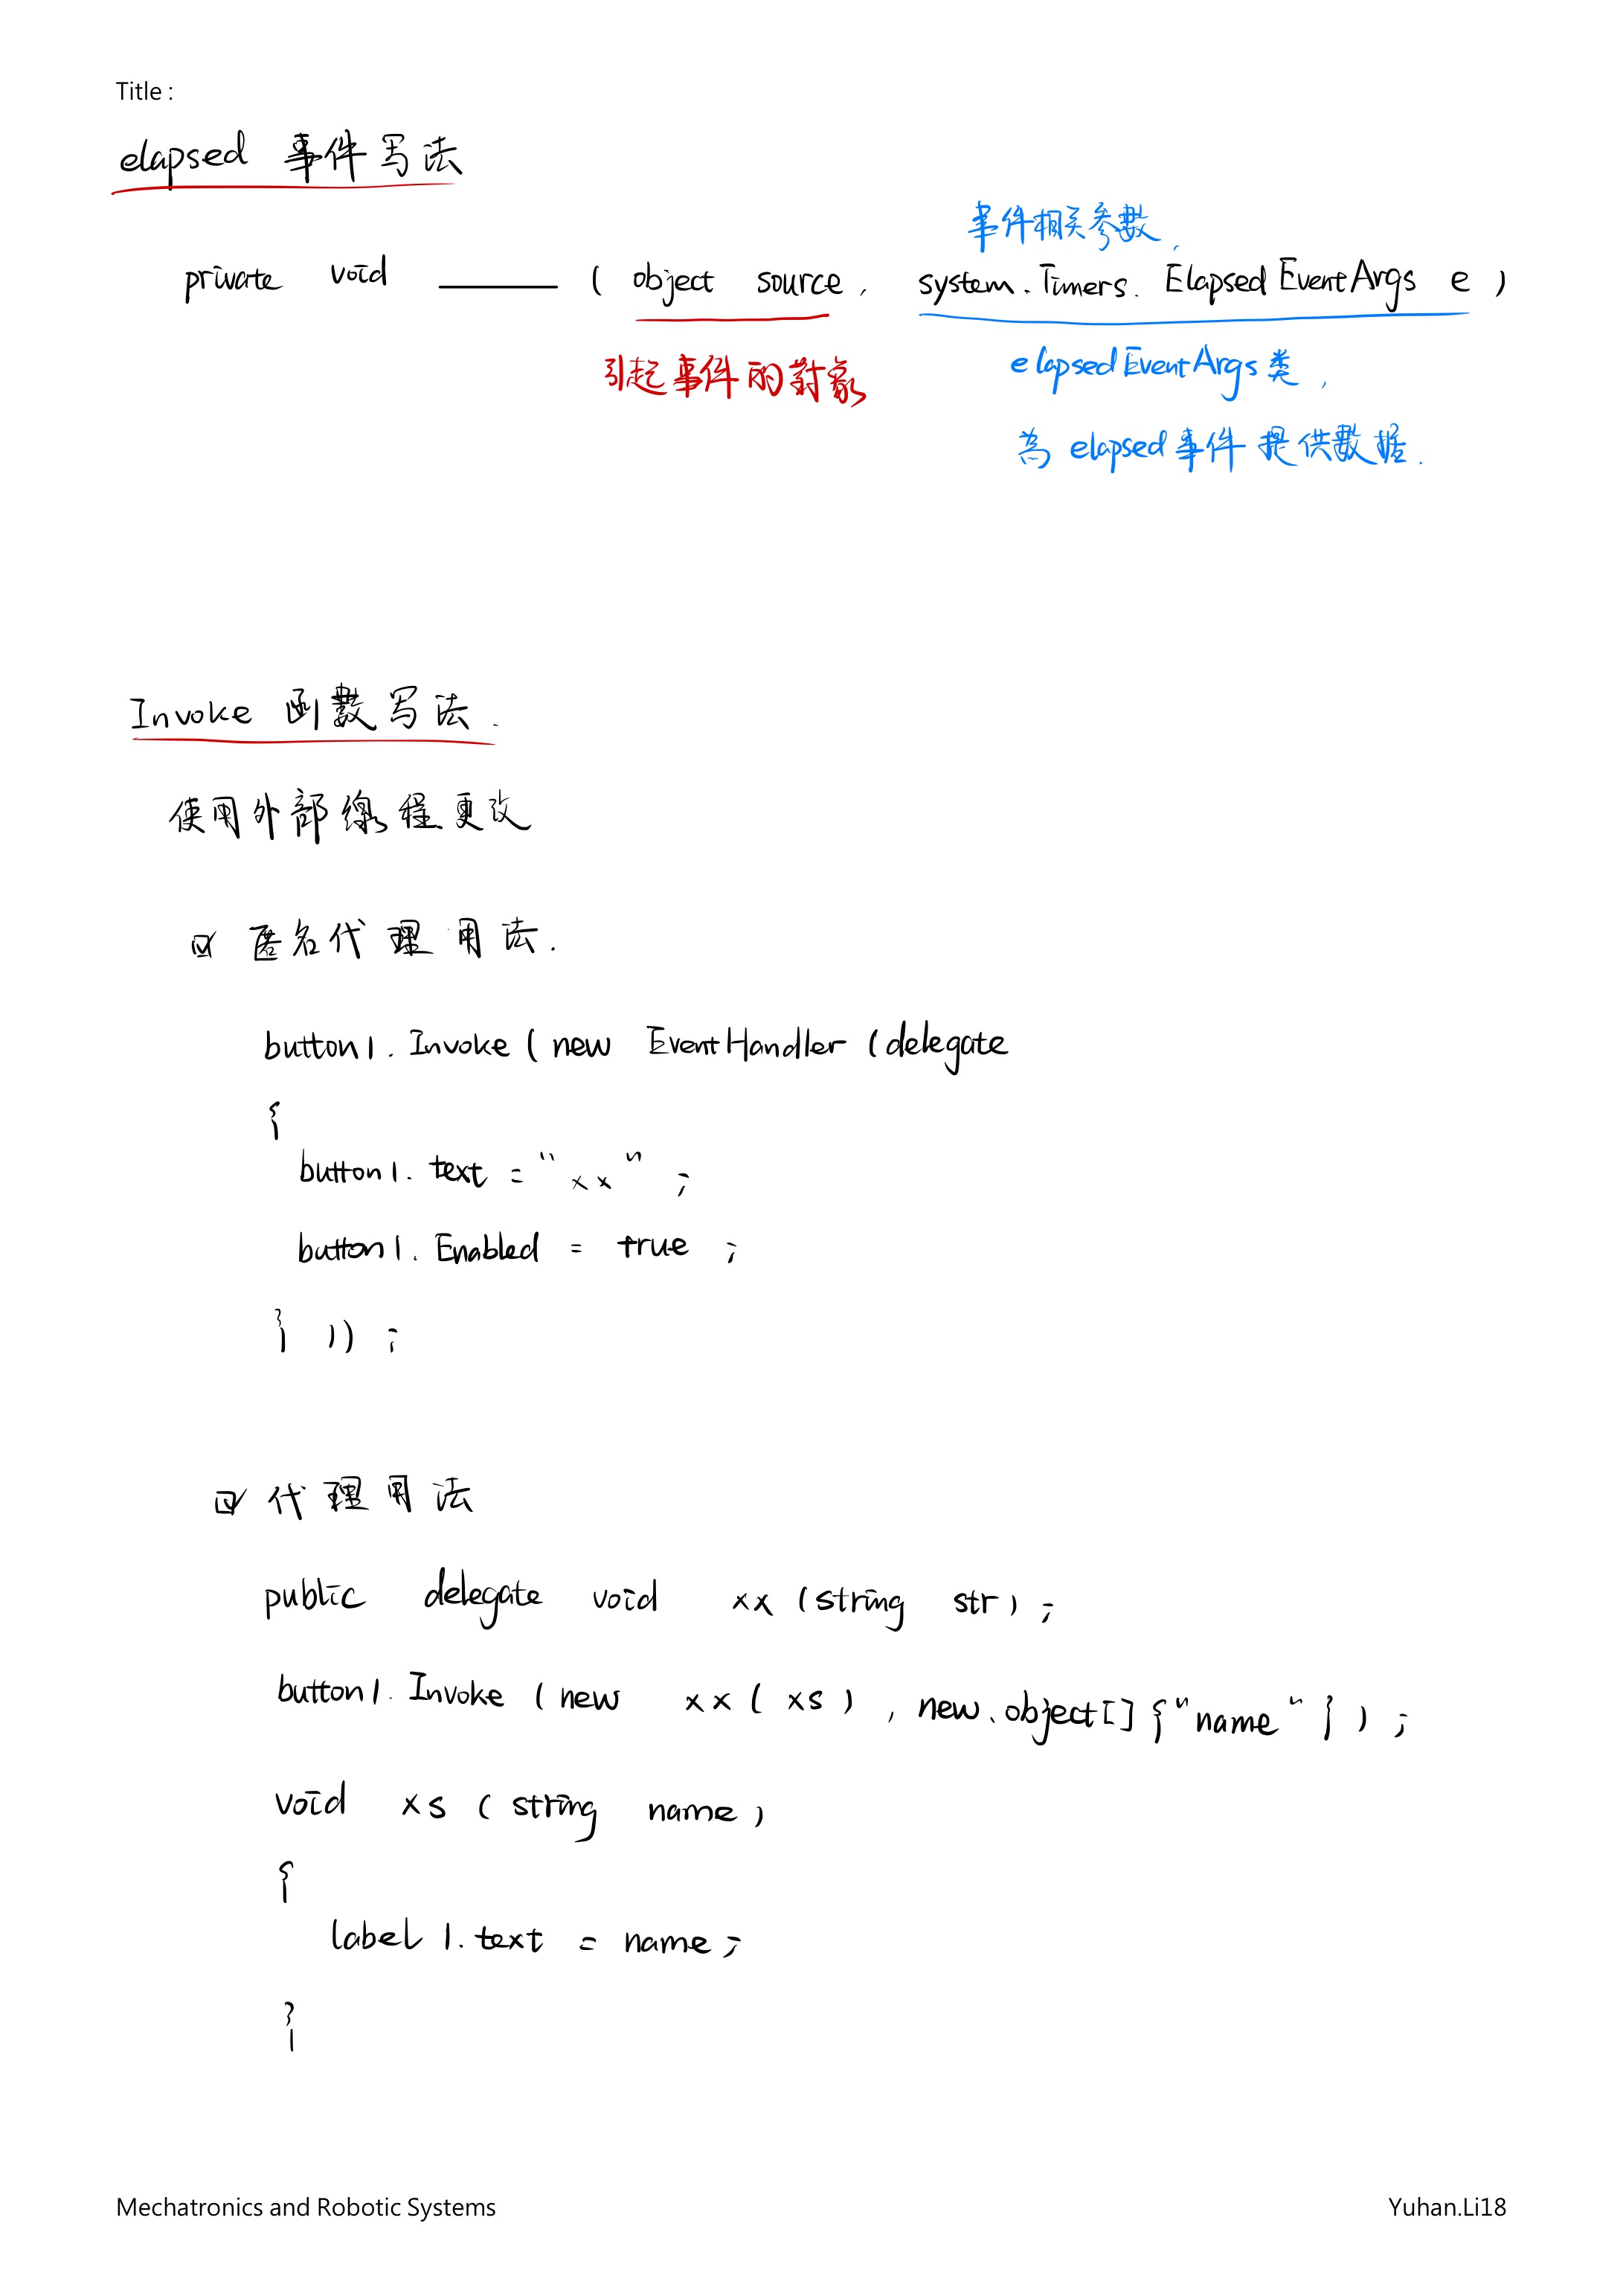 Title :
elapsed 事件写法
事件相关参數,
private void ______ ( object source, system.Timers.ElapsedEventArgs e )
引起事件的對象
elapsedEventArgs类,
為 elapsed事件提供數据.
Invoke 函數写法.
使用外部線程更改
☑ 匿名代理用法.
button1.Invoke ( new EventHandler (delegate
{
button1.text = "xx" ;
button1.Enabled = true ;
} )) ;
☑ 代理用法
public delegate void xx (string str) ;
button1.Invoke ( new xx ( xs ) , new.object[] {"name"} ) ;
void xs ( string name )
{
label1.text = name ;
}
Mechatronics and Robotic Systems
Yuhan.Li18